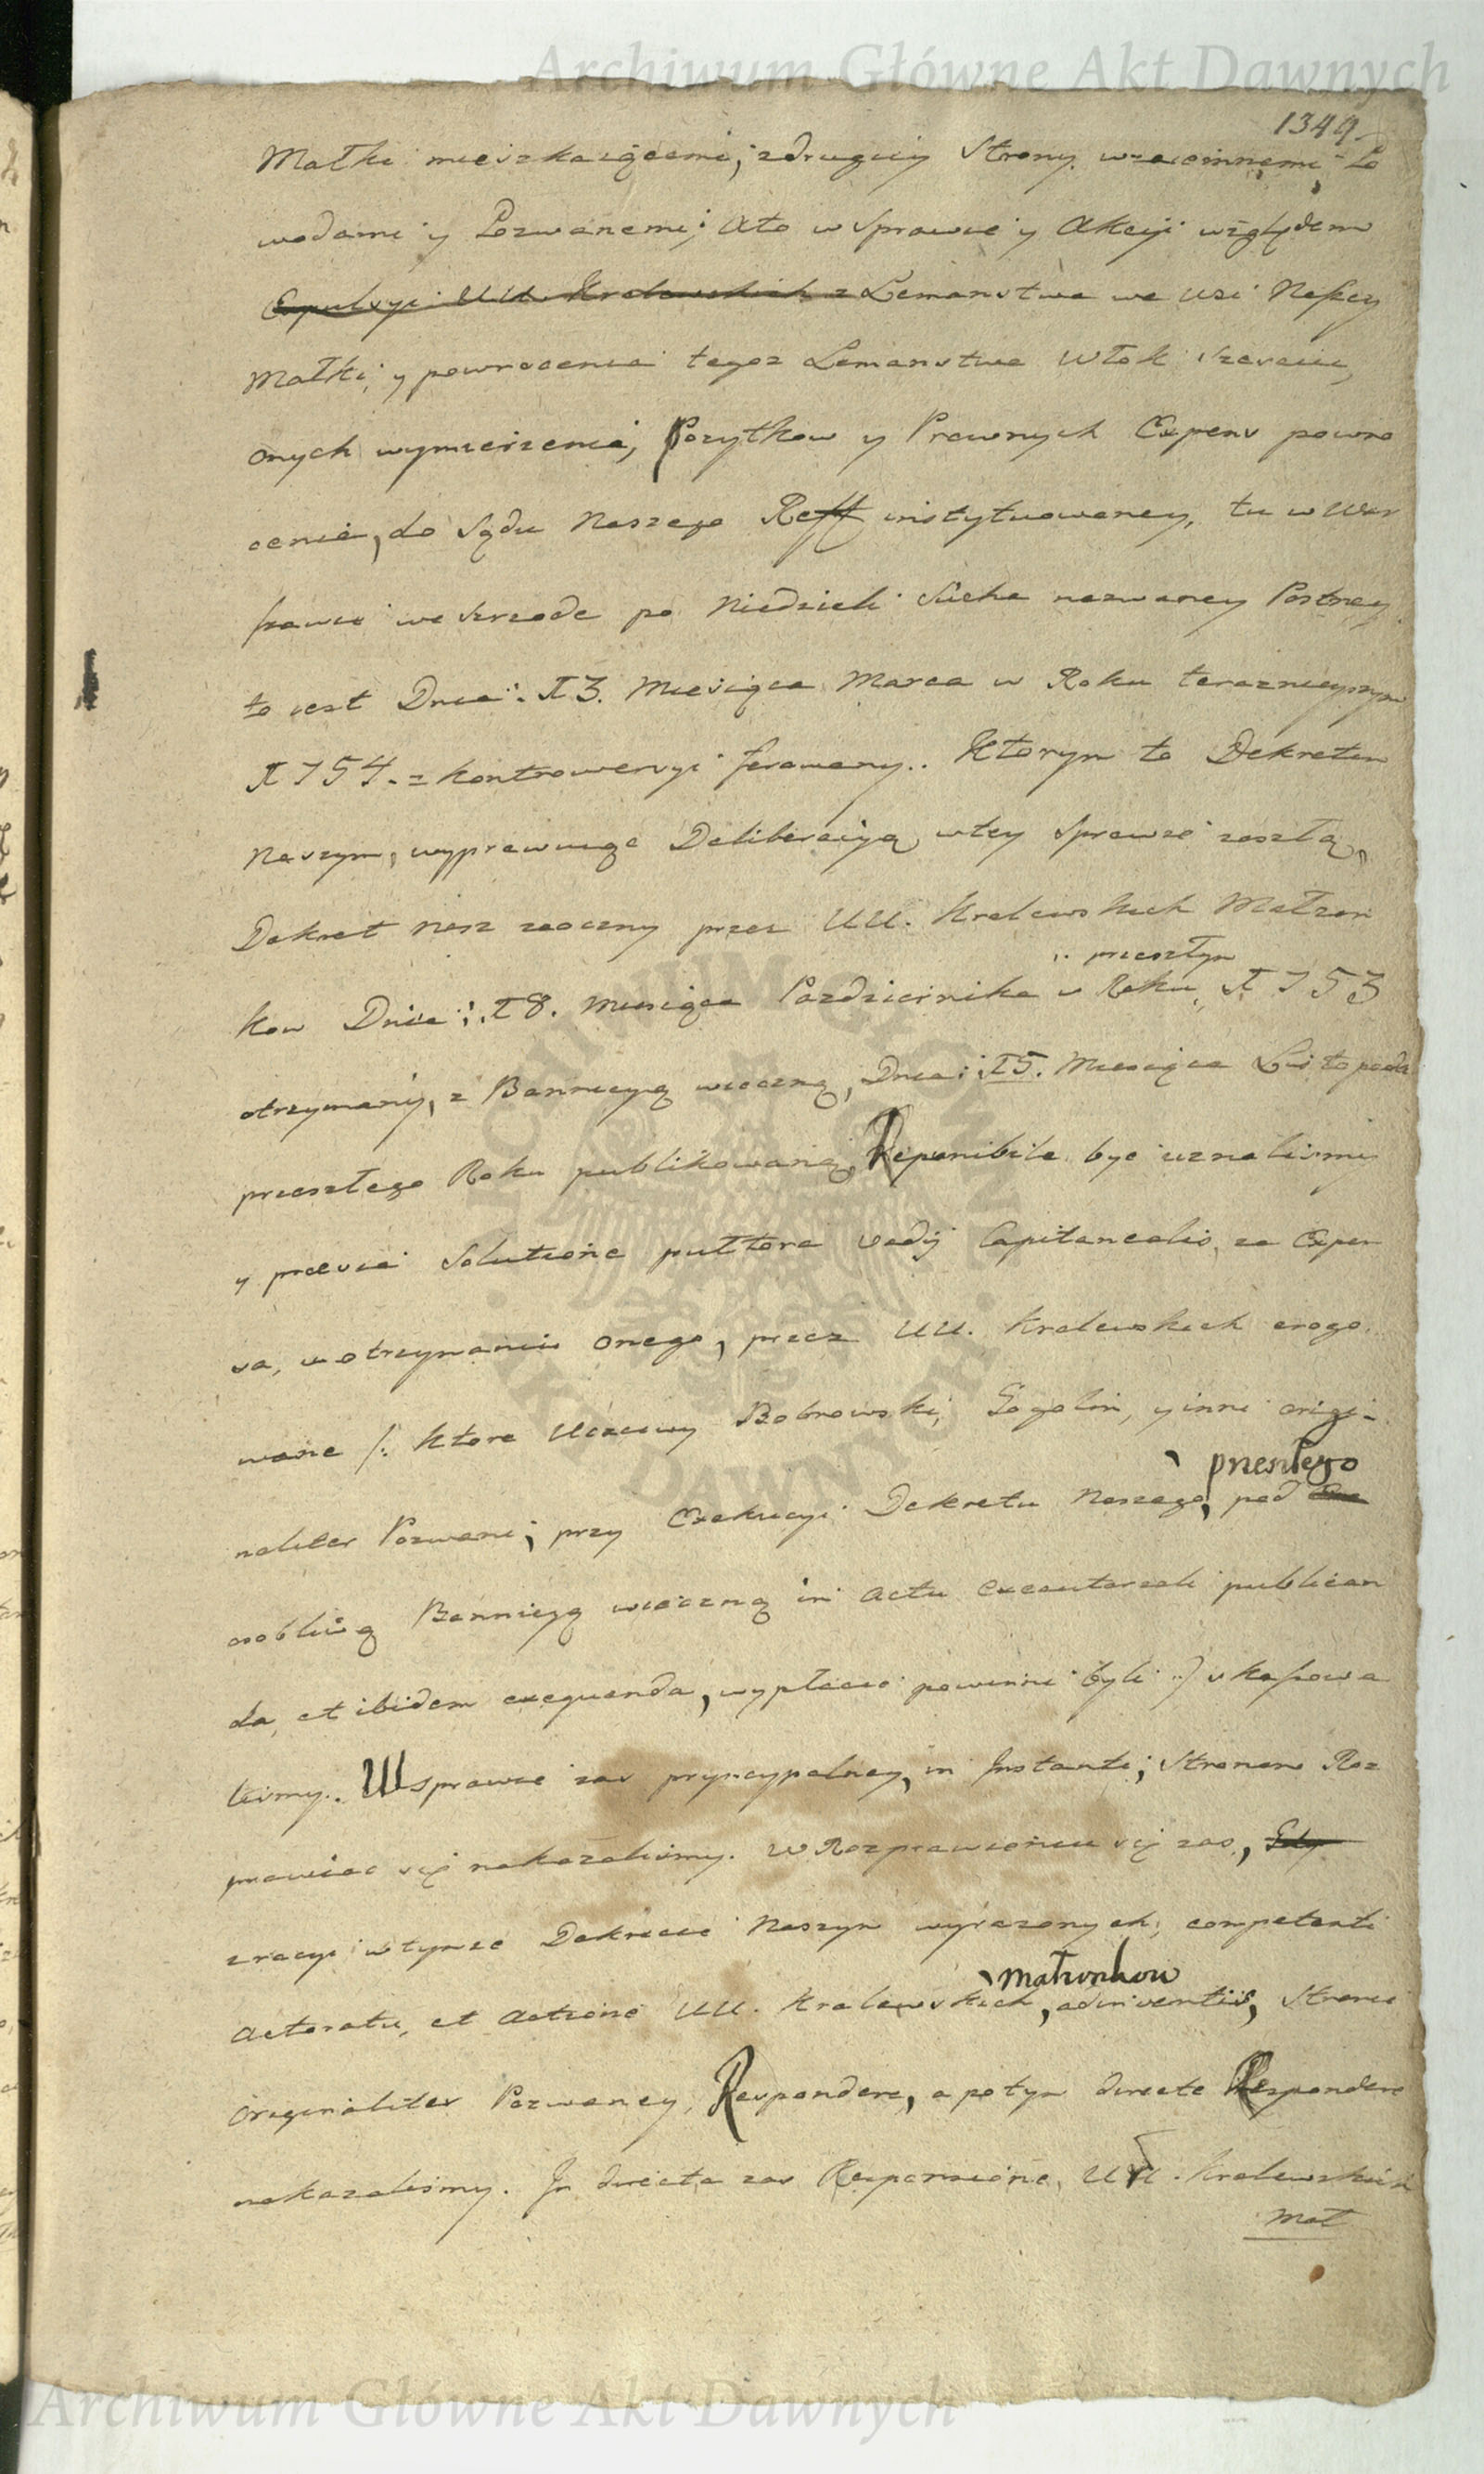 Archiwum Główne Akt Dawnych
1349
Małki mieszkaiącemi, z drugiey Strony wzaiemnemi Po
wodami y Pozwanemi; Ato w Sprawie y Akcyi względem
Expulsyi UU. Krolewskich z Lemanstwa we Wsi Naszey
Małki, y powrocenia tegoz Lemanstwa Włok szesciu,
onych wymierzenia, Pozytkow y Prawnych Expens powro
cenia, do Sądu Naszego Reff instytuowaney, tu w War
szawie we Srzode po Niedzieli Sucha nazwaney Postney
to iest Dnia: 13. Miesiąca Marca w Roku teraznieyszym
1754. z kontrowersyi ferowany.. Ktorym to Dekretem
Naszym, wyprawuiąc Deliberacyą wtey Sprawie zaszłą,
Dekret Nasz zaoczny przez UU. Krolewskich Małzon
przeszłym
kow Dnia: 18. Miesiąca Pazdziernika w Roku 1753
otrzymany, z Bannicyą wieczną, Dnia: 15. Miesiąca Listopada
przeszłego Roku publikowaną, Reponibile byc uznalismy
y prævia Solutione pułtora vadij Capitanealis, za Expen
sa, w otrzymaniu onego, przez UU. Krolewskich erogo
wane /: ktore Uczciwy Bobrowski, Gogolin, y inni origi-
przeszłego
naliter Pozwani, przy Exekucyi Dekretu Naszego, pod
osobliwą Bannicyą wieczną in Actu executoriali publican
da, et ibidem exequenda, wypłacic powinni byli :/ skassowa
lismy. W Sprawie zas pryncypalney, in Instanti, Stronom Roz
prawiac się nakazalismy. W Rozprawieniu się zas, Gdy
z racyi w tymze Dekrecie Naszym wyrazonych, competenti
Małzonkow
Actoratu, et Actione UU. Krolewskich, adinventis, Stronie
Originaliter Pozwaney, Respondere, a potym directe Respondere
nakazalismy. In directa zas Responsione, UU. Krolewskich
Mał
Archiwum Główne Akt Dawnych